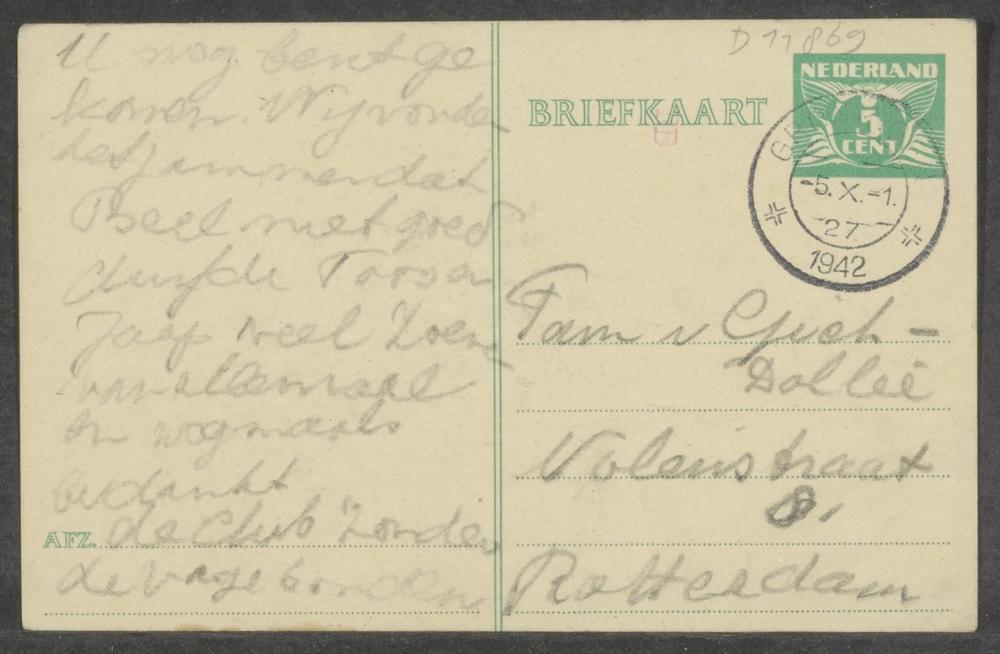 D 11869
NEDERLAND
5
CENT
BRIEFKAART
-5. X. -1.
27
1942
U nog bent ge
komen. Wij vonden
het jammer dat
Beel niet goed
durfde Toos en
Jaap veel Zoene
van allemaal
en nogmaals
bedankt
AFZ. de Club Zonder
de vagebonden
Fam v Gich-
Dollee
Volenstraat
8.
Rotterdam